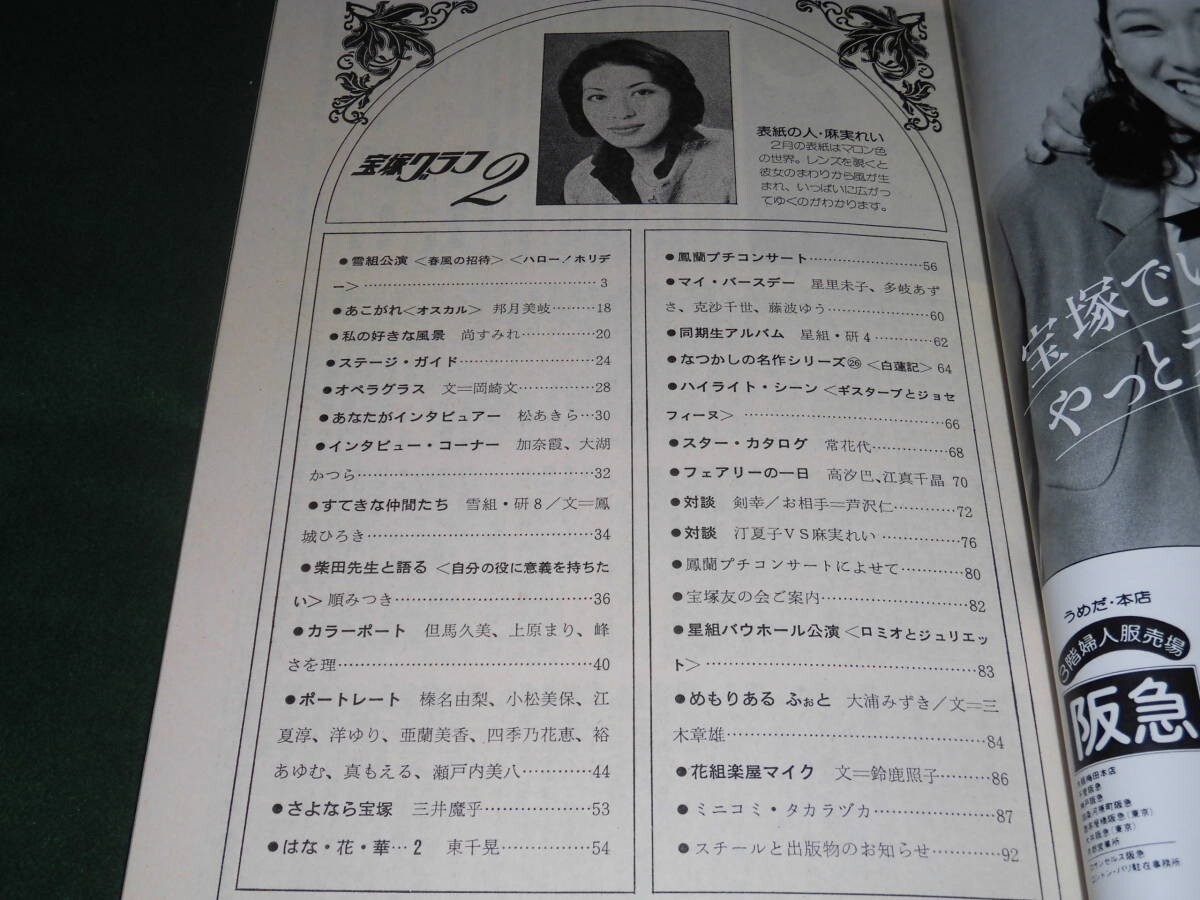 宝塚グラフ 2
表紙の人・麻実れい
2月の表紙はマロン色
の世界。レンズを覗くと
彼女のまわりから風が生
まれ、いっぱいに広がっ
てゆくのがわかります。
●雪組公演 〈春風の招待〉〈ハロー!ホリデ
ー〉……………………………3
●あこがれ〈オスカル〉 邦月美岐………18
●私の好きな風景 尚すみれ……………20
●ステージ・ガイド………………………24
●オペラグラス 文=岡崎文……………28
●あなたがインタビュアー 松あきら…30
●インタビュー・コーナー 加奈霞、大湖
かつら……………………………32
●すてきな仲間たち 雪組・研8/文=鳳
城ひろき……………………………34
●柴田先生と語る 〈自分の役に意義を持ちた
い〉順みつき………………………36
●カラーポート 但馬久美、上原まり、峰
さを理………………………………40
●ポートレート 榛名由梨、小松美保、江
夏淳、洋ゆり、亜蘭美香、四季乃花恵、裕
あゆむ、真もえる、瀬戸内美八…………44
●さよなら宝塚 三井魔乎………………53
●はな・花・華…2 東千晃……………54
●鳳蘭プチコンサート……………………56
●マイ・バースデー 星里未子、多岐あず
さ、克沙千世、藤波ゆう…………………60
●同期生アルバム 星組・研4…………62
●なつかしの名作シリーズ㉖ 〈白蓮記〉64
●ハイライト・シーン〈ギスターブとジョセ
フィーヌ〉……………………………66
●スター・カタログ 常花代……………68
●フェアリーの一日 高汐巴、江真千晶 70
●対談 剣幸/お相手=芦沢仁…………72
●対談 汀夏子VS麻実れい……………76
●鳳蘭プチコンサートによせて…………80
●宝塚友の会ご案内………………………82
●星組バウホール公演〈ロミオとジュリエッ
ト〉……………………………………83
●めもりある ふぉと 大浦みずき/文=三
木章雄…………………………………84
●花組楽屋マイク 文=鈴鹿照子………86
●ミニコミ・タカラヅカ…………………87
●スチールと出版物のお知らせ…………92
宝塚でし
やっと
うめだ・本店
3階婦人服売場
阪急